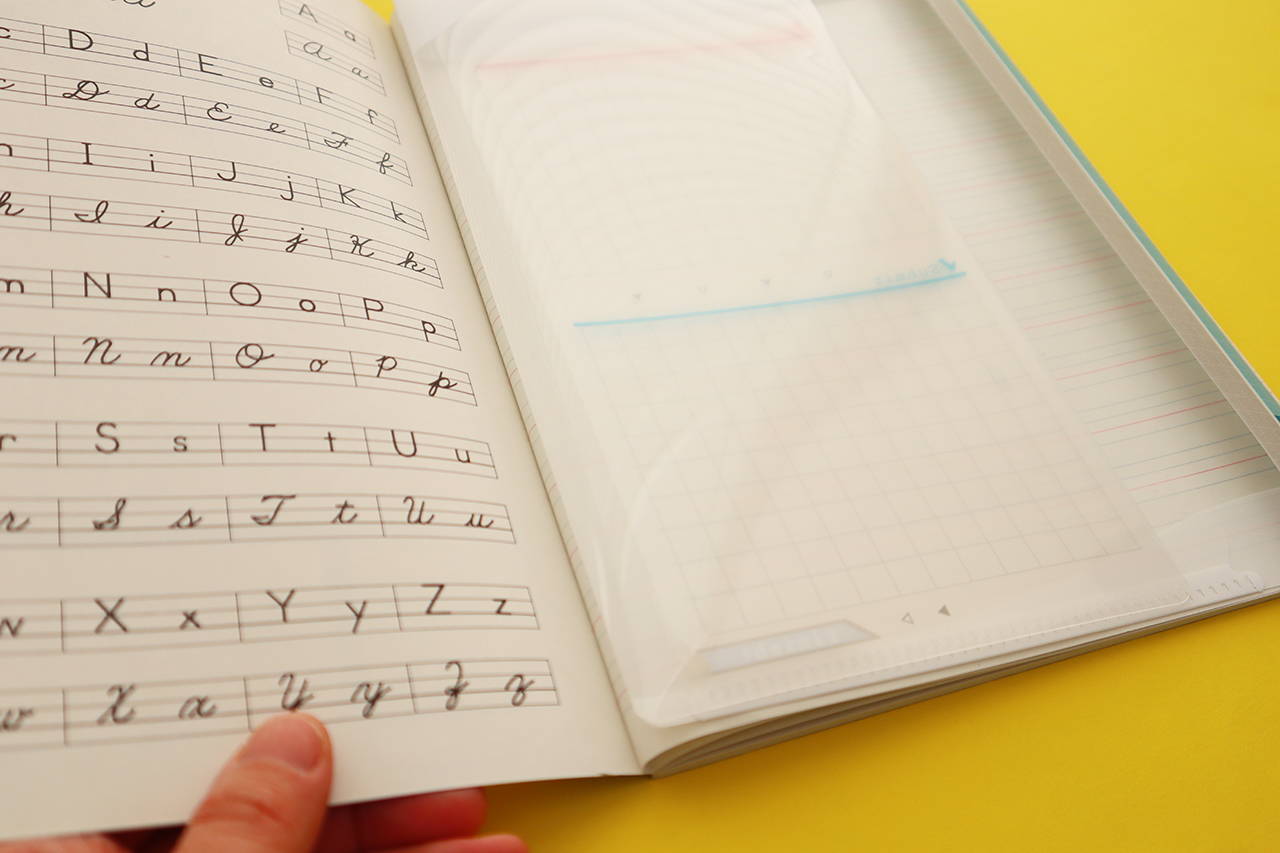 A a
A a
c D d E e F f
c D d E e F f
h I i J j K k
h I i J j K k
m N n O o P p
m N n O o P p
r S s T t U u
r S s T t U u
w X x Y y Z z
w X x Y y Z z
Submit